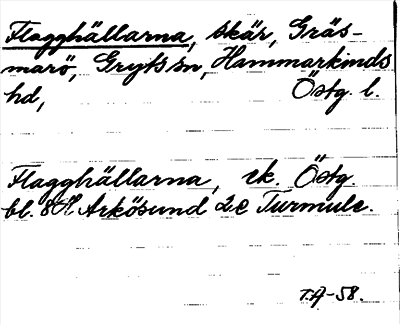 Flagghällarna, skär, Gräs-
marö, Gryts sn, Hammarkinds
hd, Östg. l.
Flagghällarna, ek. Östg.
bl. 8H Arkösund 2e Turmulr.
T.A-58.